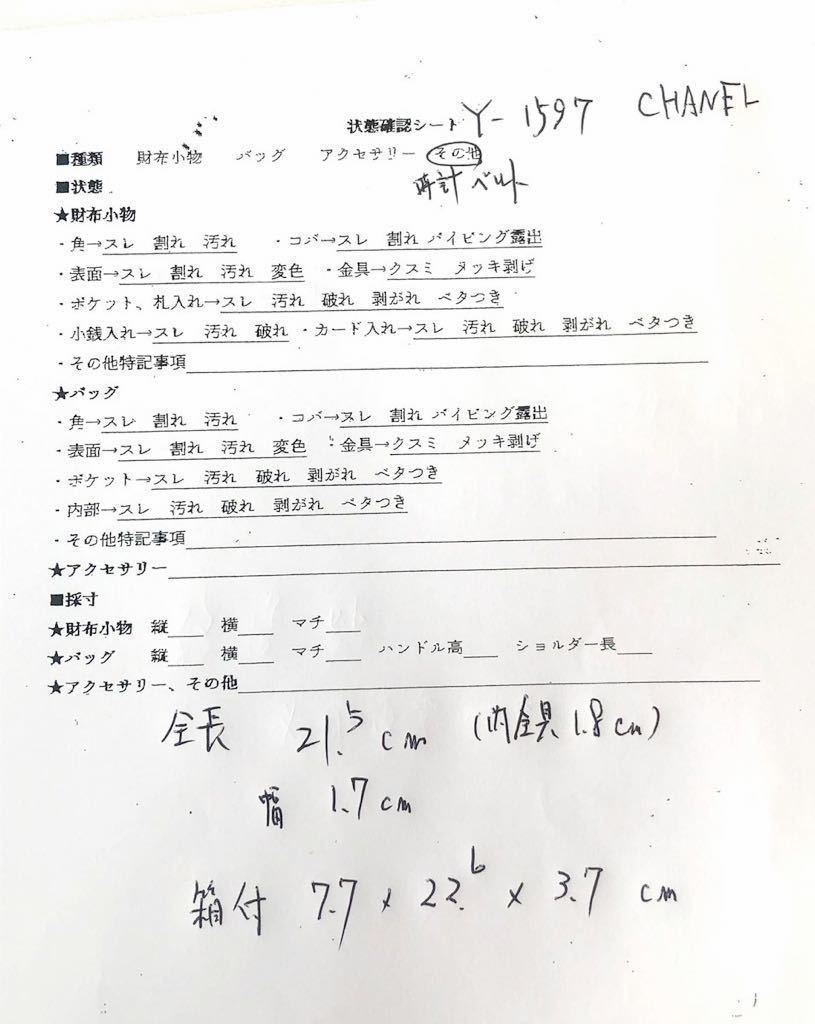 状態確認シート Y-1597 CHANEL
■種類 財布小物 バッグ アクセサリー その他
時計ベルト
■状態
★財布小物
・角→スレ 割れ 汚れ ・コバ→スレ 割れ パイピング露出
・表面→スレ 割れ 汚れ 変色 ・金具→クスミ メッキ剥げ
・ポケット、札入れ→スレ 汚れ 破れ 剥がれ ベタつき
・小銭入れ→スレ 汚れ 破れ ・カード入れ→スレ 汚れ 破れ 剥がれ ベタつき
・その他特記事項
★バッグ
・角→スレ 割れ 汚れ ・コバ→スレ 割れ パイピング露出
・表面→スレ 割れ 汚れ 変色 ・金具→クスミ メッキ剥げ
・ポケット→スレ 汚れ 破れ 剥がれ ベタつき
・内部→スレ 汚れ 破れ 剥がれ ベタつき
・その他特記事項
★アクセサリー
■採寸
★財布小物 縦 横 マチ
★バッグ 縦 横 マチ ハンドル高 ショルダー長
★アクセサリー、その他
全長 21.5 cm (内金具 1.8cm)
幅 1.7cm
箱付 7.7 x 22.6 x 3.7 cm